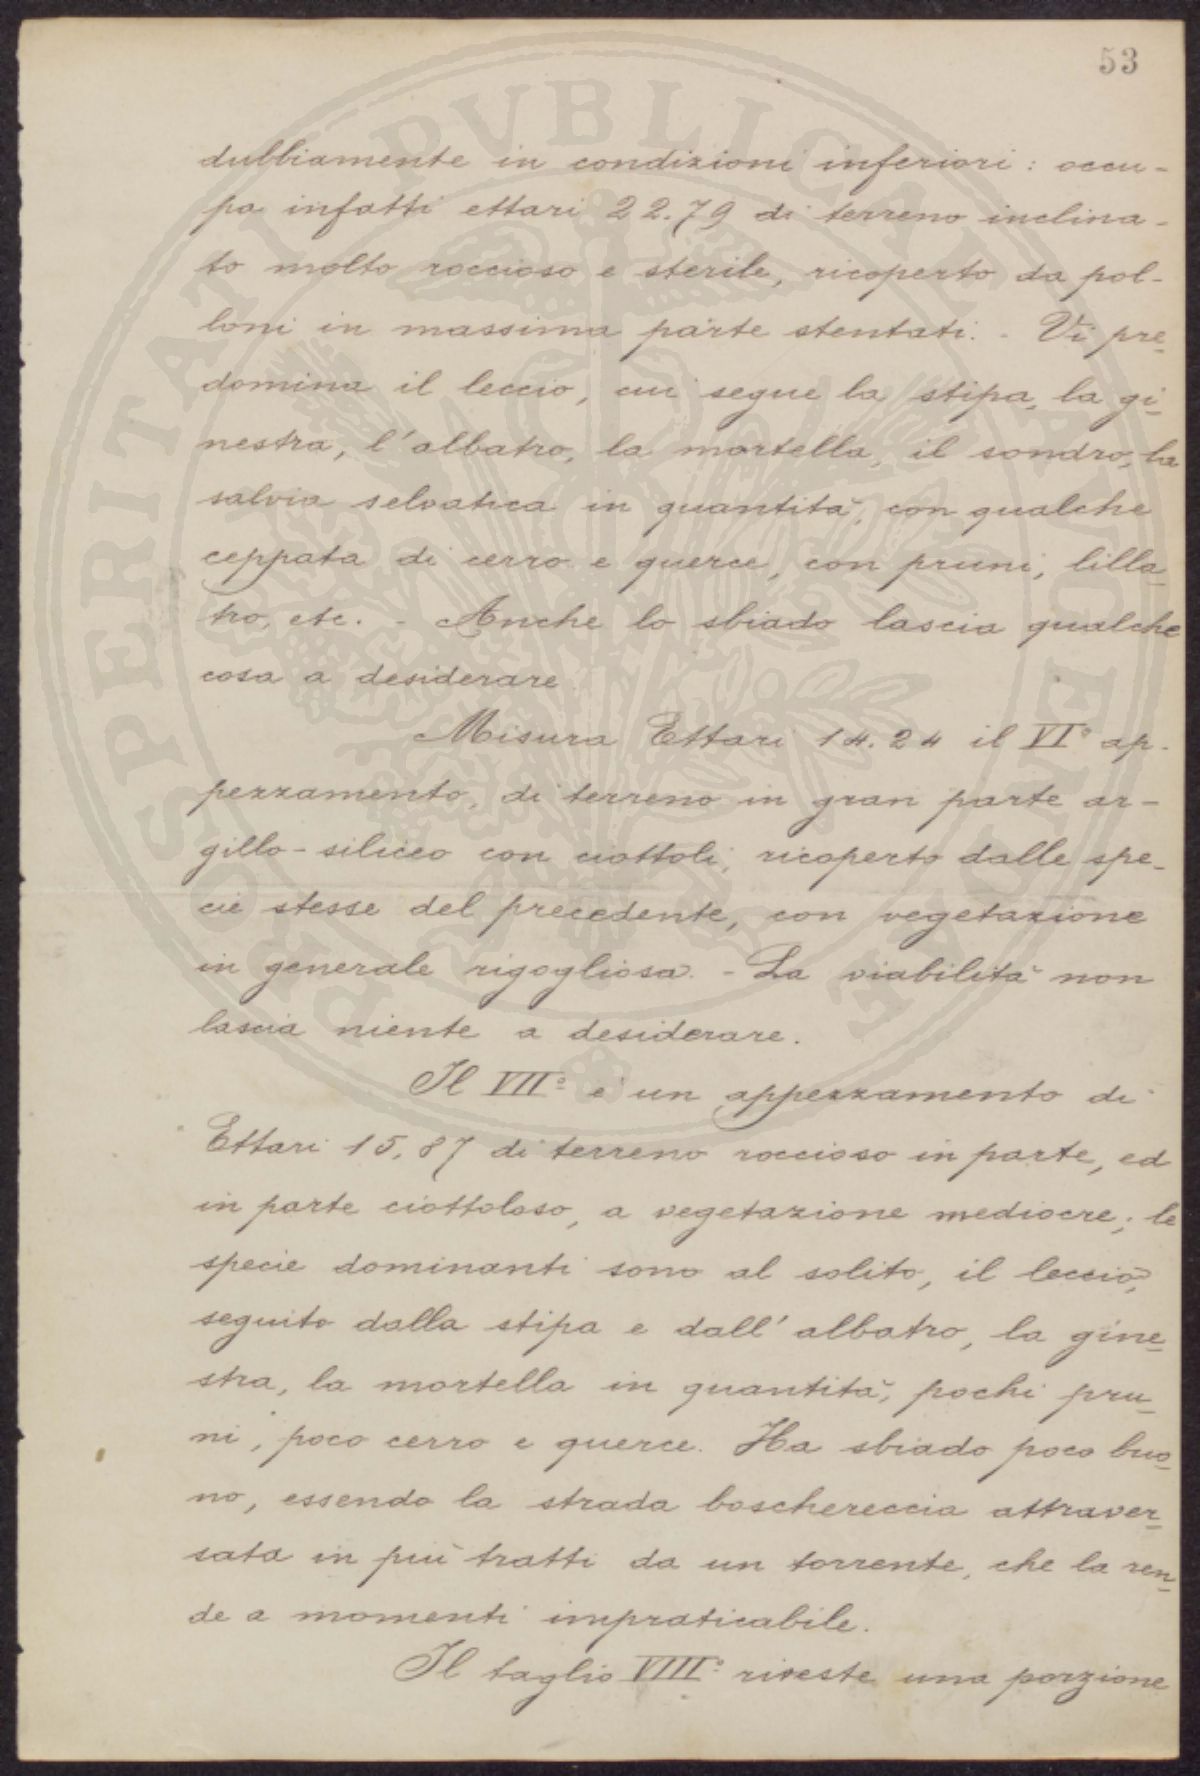 53
dubbiamente in condizioni inferiori: occu-
pa infatti ettari 22.79 di terreno inclina-
to molto roccioso e sterile, ricoperto da pol-
loni in massima parte stentati. - Vi pre-
domina il leccio, cui segue la stipa, la gi-
nestra, l'albatro, la mortella, il sondro, la
salvia selvatica in quantità, con qualche
ceppata di cerro e querce, con pruni, lilla-
tro, etc. - Anche lo sbiado lascia qualche
cosa a desiderare
Misura Ettari 14.24 il VI° ap-
pezzamento, di terreno in gran parte ar-
gillo-siliceo con ciottoli, ricoperto dalle spe-
cie stesse del precedente, con vegetazione
in generale rigogliosa. - La viabilità non
lascia niente a desiderare.
Il VII° è un appezzamento di
Ettari 15,87 di terreno roccioso in parte, ed
in parte ciottoloso, a vegetazione mediocre; le
specie dominanti sono al solito, il leccio,
seguito dalla stipa e dall'albatro, la gine-
stra, la mortella in quantità, pochi pru-
ni, poco cerro e querce. Ha sbiado poco buo-
no, essendo la strada boschereccia attraver-
sata in più tratti da un torrente, che la ren-
de a momenti impraticabile.
Il taglio VIII° riveste una porzione
PROSPERITATI PUBLICAE